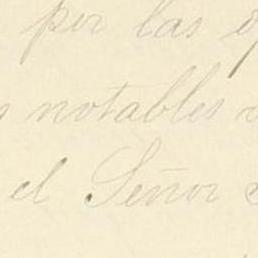 por las
notables
el Señor